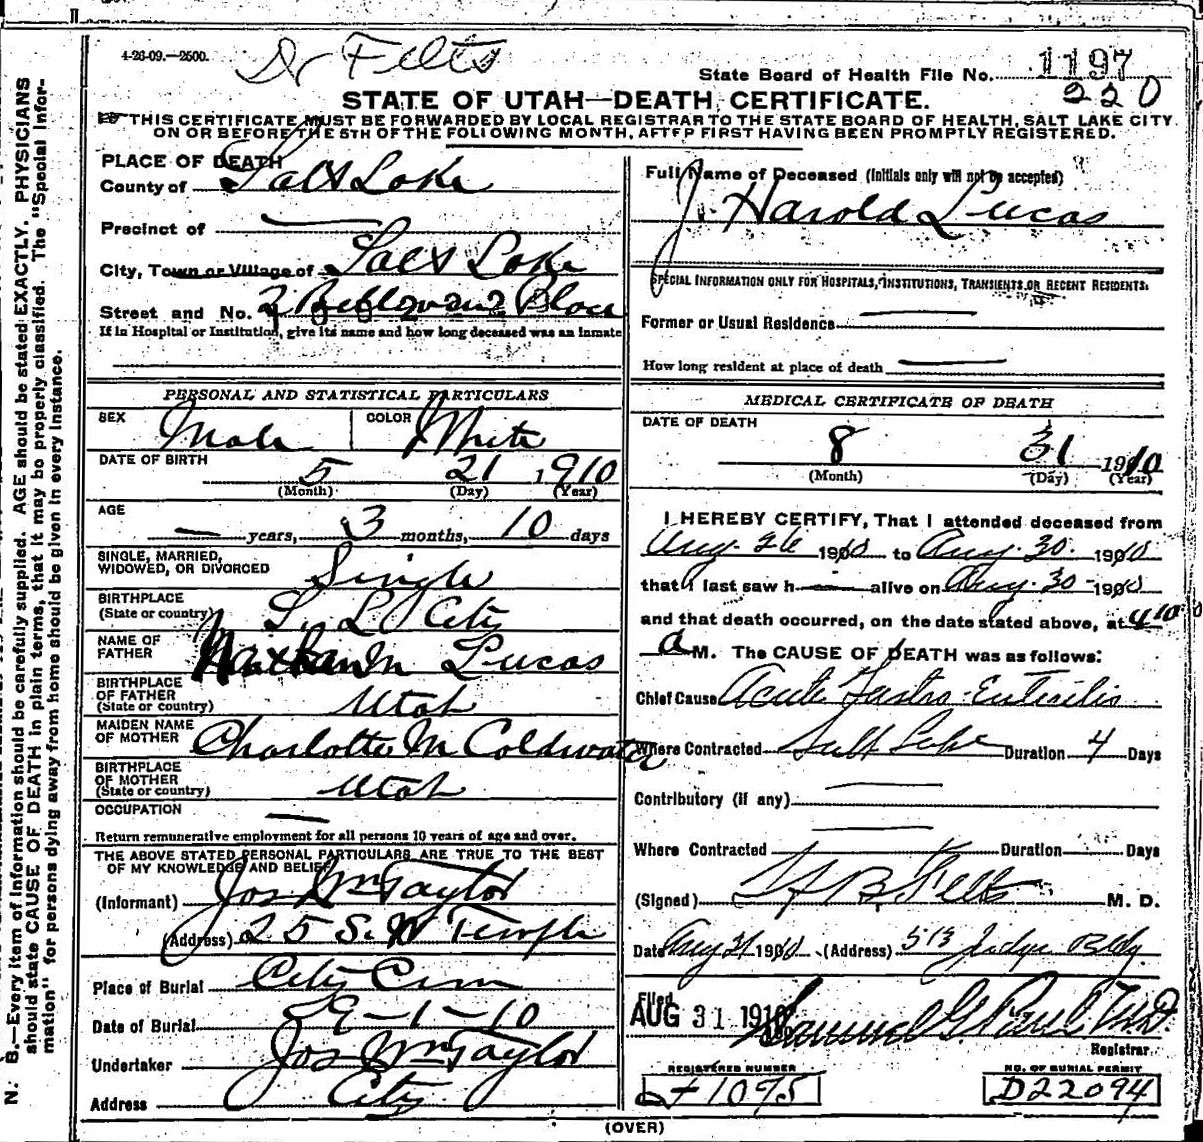 4-26-09.—2500.
Dr Felts
State Board of Health File No. 1197
220
STATE OF UTAH—DEATH CERTIFICATE.
THIS CERTIFICATE MUST BE FORWARDED BY LOCAL REGISTRAR TO THE STATE BOARD OF HEALTH, SALT LAKE CITY
ON OR BEFORE THE 5TH OF THE FOLLOWING MONTH, AFTER FIRST HAVING BEEN PROMPTLY REGISTERED.
PLACE OF DEATH
County of Salt Lake
Precinct of —
City, Town or Village of Salt Lake
Street and No.
If in Hospital or Institution, give its name and how long deceased was an inmate
PERSONAL AND STATISTICAL PARTICULARS
SEX Male COLOR White
DATE OF BIRTH 5 21 1910
(Month) (Day) (Year)
AGE
— years, 3 months, 10 days
SINGLE, MARRIED,
WIDOWED, OR DIVORCED Single
BIRTHPLACE
(State or country) S. L. City
NAME OF
FATHER Nathan M Lucas
BIRTHPLACE
OF FATHER
(State or country) Utah
MAIDEN NAME
OF MOTHER Charlotte M Coldwater
BIRTHPLACE
OF MOTHER
(State or country) Utah
OCCUPATION —
Return remunerative employment for all persons 10 years of age and over.
THE ABOVE STATED PERSONAL PARTICULARS ARE TRUE TO THE BEST
OF MY KNOWLEDGE AND BELIEF
(Informant) Jos Wm Taylor
(Address) 25 S. W Temple
Place of Burial City Cem
Date of Burial 9-1-10
Undertaker Jos Wm Taylor
Address City
Full Name of Deceased (Initials only will not be accepted)
J. Harold Lucas
SPECIAL INFORMATION ONLY FOR HOSPITALS, INSTITUTIONS, TRANSIENTS OR RECENT RESIDENTS:
Former or Usual Residence —
How long resident at place of death —
MEDICAL CERTIFICATE OF DEATH
DATE OF DEATH
8 31 1910
(Month) (Day) (Year)
I HEREBY CERTIFY, That I attended deceased from
Aug. 26 1910 to Aug. 30. 1910
that I last saw h— alive on Aug. 30 - 1910
and that death occurred, on the date stated above, at 4 10
a M. The CAUSE OF DEATH was as follows:
Chief Cause Acute Gastro-Enteritis
Where Contracted Salt Lake Duration 4 Days
Contributory (if any) —
Where Contracted Duration Days
(Signed) Felts M. D.
Date Aug 31 1910 (Address) 513 Judge Bldg.
Filed
AUG 31 1910 Samuel G. Paul M.D.
Registrar
REGISTERED NUMBER
1095
NO. OF BURIAL PERMIT
D22094
(OVER)
N. B.—Every item of information should be carefully supplied. AGE should be stated EXACTLY. PHYSICIANS
should state CAUSE OF DEATH in plain terms, that it may be properly classified. The "Special Infor-
mation" for persons dying away from home should be given in every instance.